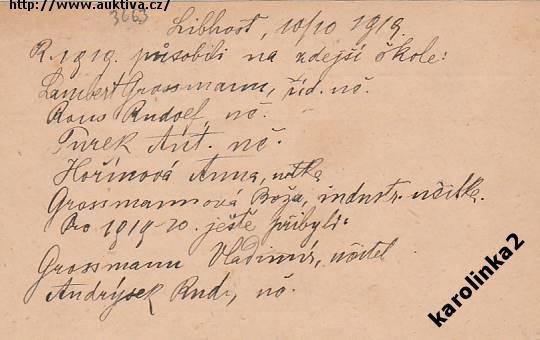 www.auktiva.cz/
3663
Libhošť, 10/10 1919.
R. 1919. působili na zdejší škole:
Lambert Grossmann, říd. uč.
Rous Rudolf, uč.
Turek Ant. uč.
Hořínová Anna, učtka
Grossmannová Boža, industr. učitka.
Pro 1919-20. ještě přibyli:
Grossmann Vladimír, učitel
Andrýsek Rud., uč.
karolinka2